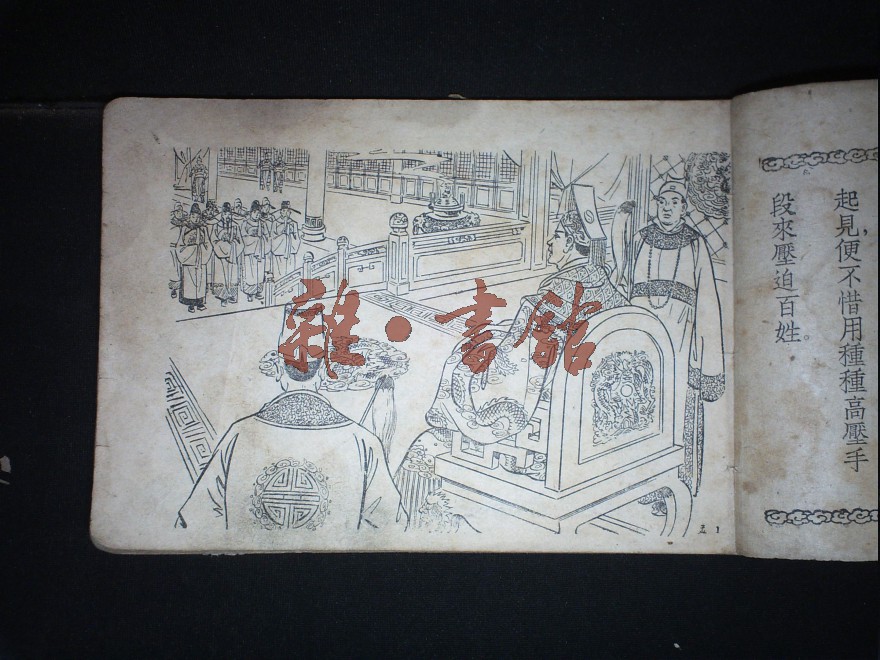 起見，便不惜用種種高壓手
段來壓迫百姓。
雜·書館
1